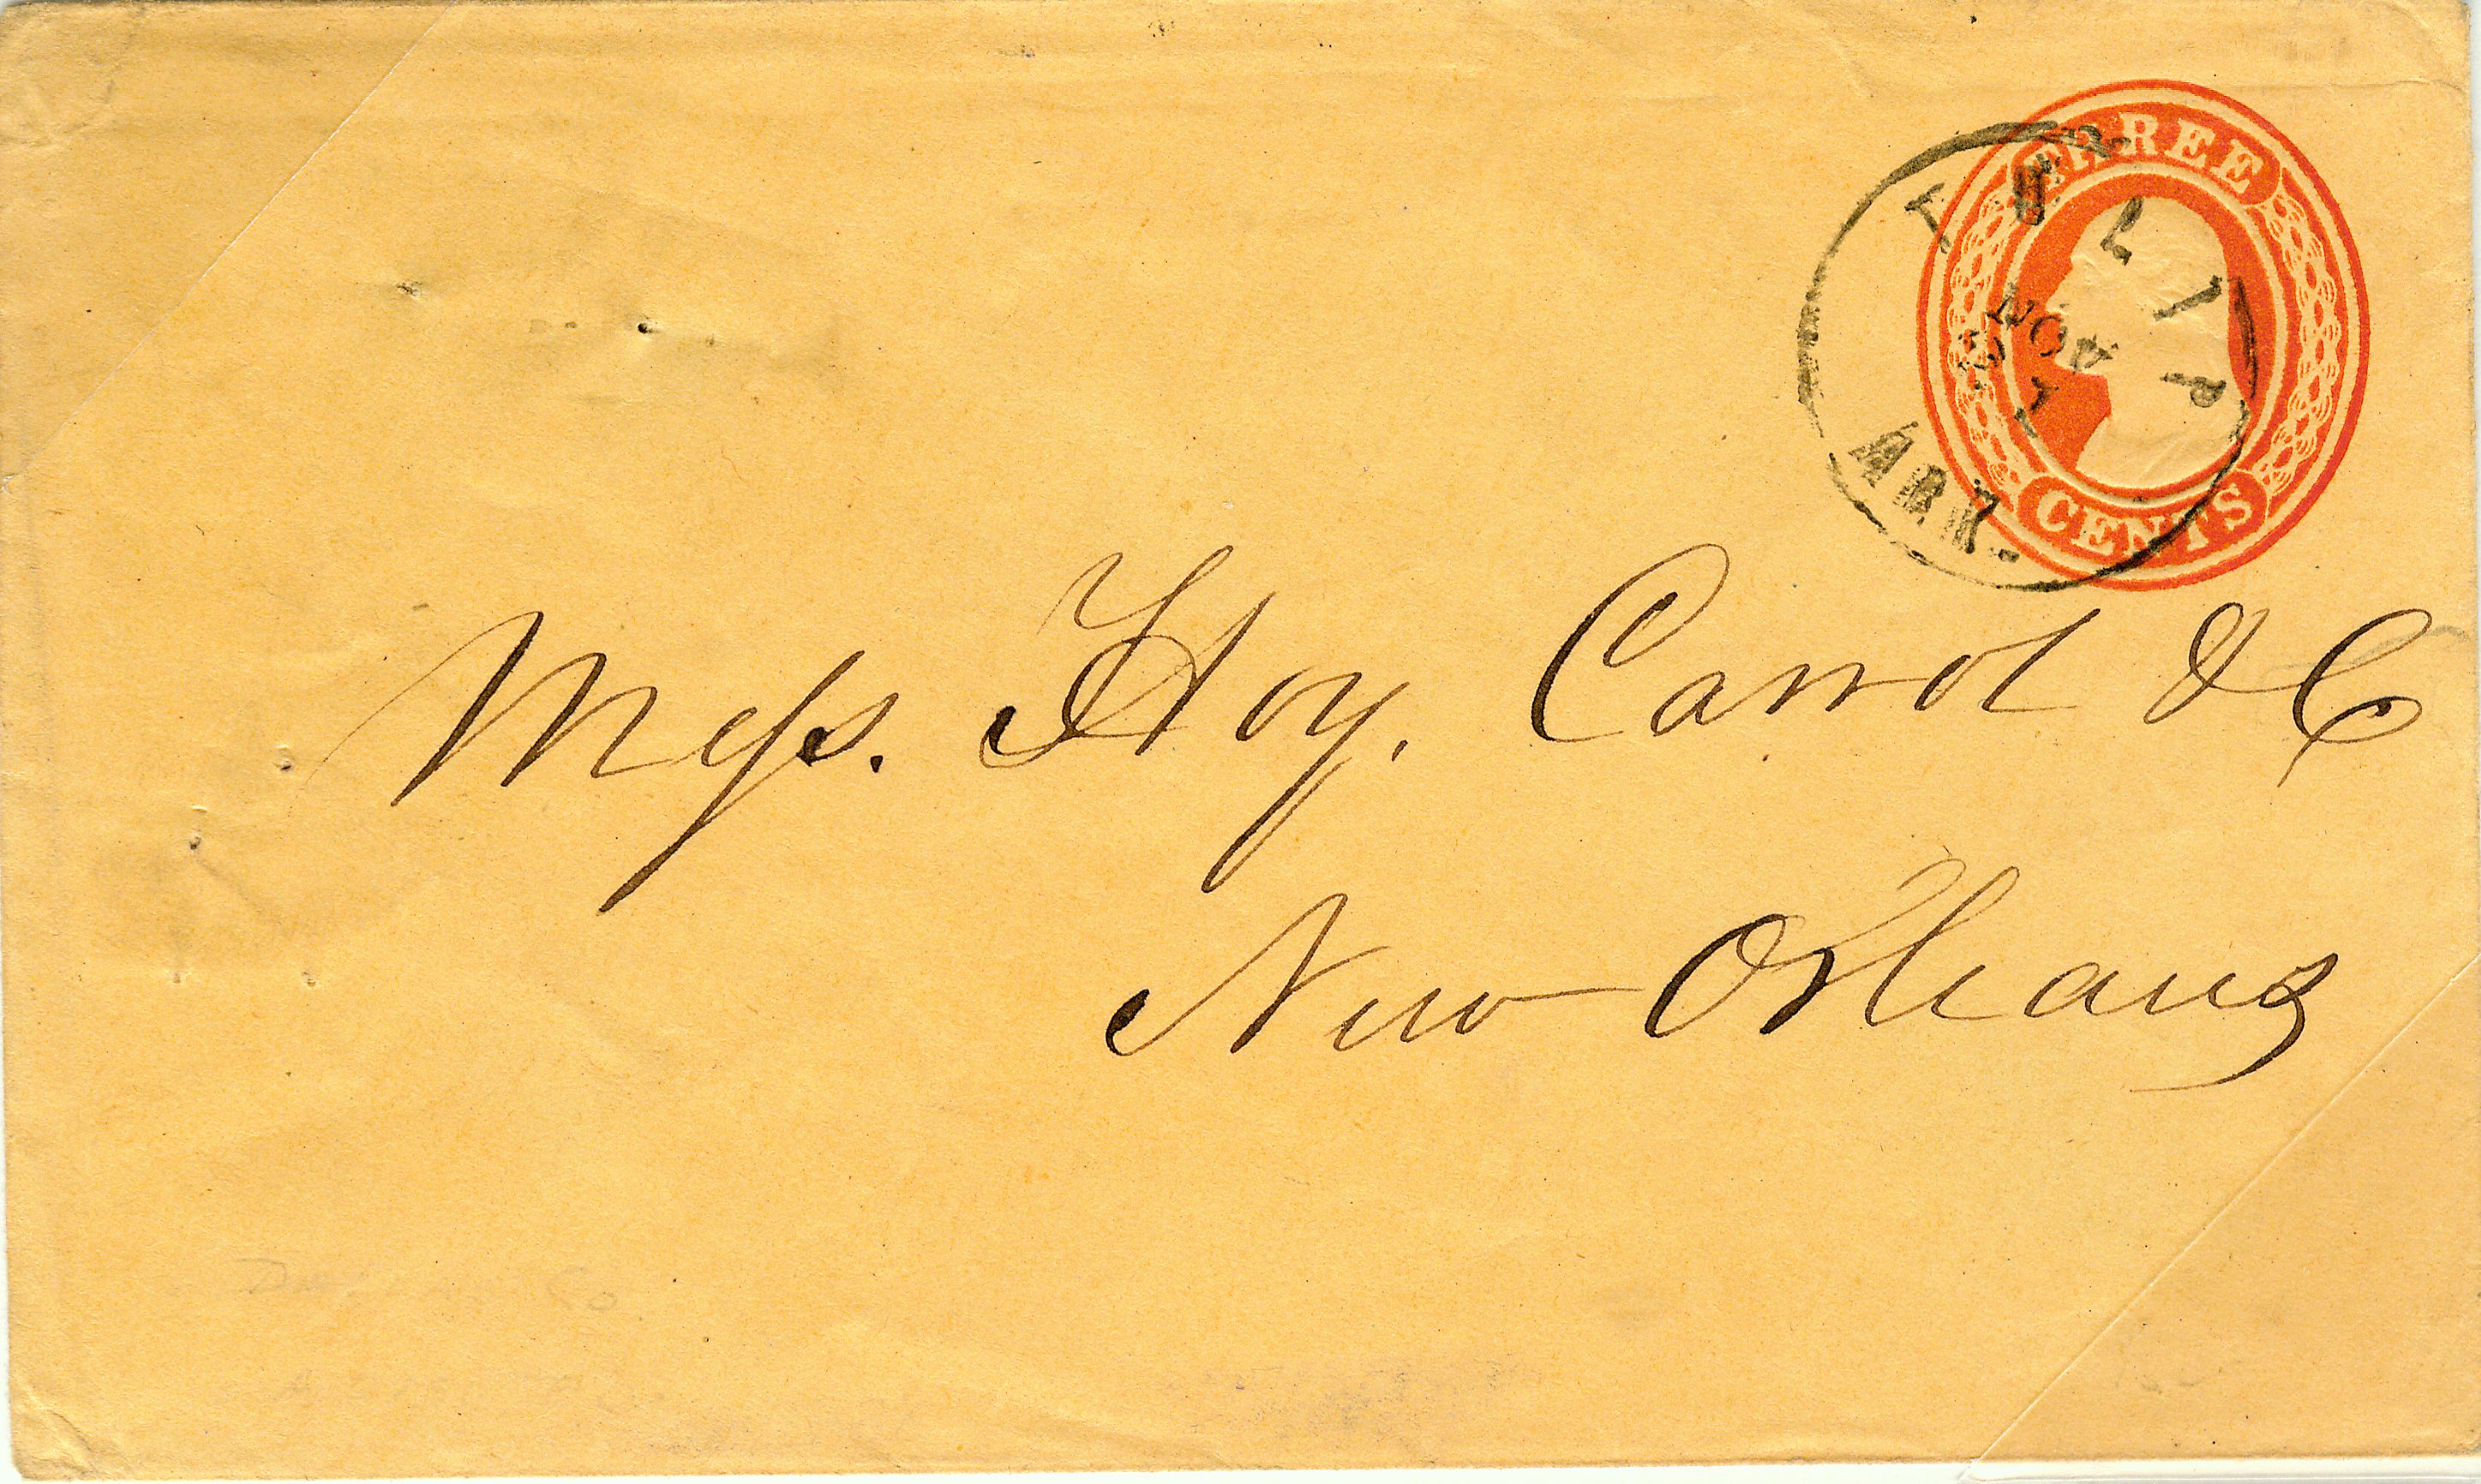 THREE
CENTS
TULIP
NOV
ARK.
Mess. Hoy, Carrol & C
New Orleans
Co